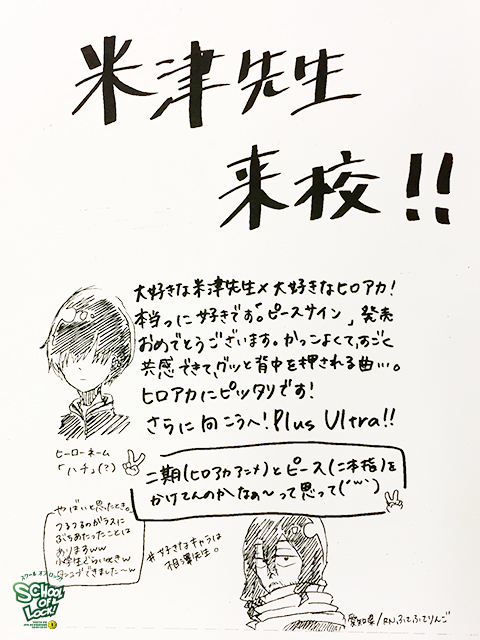 米津先生
来校!!
大好きな米津先生×大好きなヒロアカ!
本当っに好きです。「ピースサイン」発売
おめでとうございます。かっこよくて、すごく
共感できて、グッと背中を押される曲…。
ヒロアカにピッタリです!
さらに向こうへ! Plus Ultra!!
ヒーローネーム
「ハチ」(?)
二期(ヒロアカアニメ)とピース(二本指)を
かけてんのかなぁ〜って思って(´w`)
やばいと思ったとき。
つるつるのガラスに
ぶちあたったことは
ありますww
小学生ぐらいのとき
#好きなキャラは
相澤先生。
愛知県/RN,ふてふてりんご
スクール オブ ロック!
SCHOOL OF LOCK!